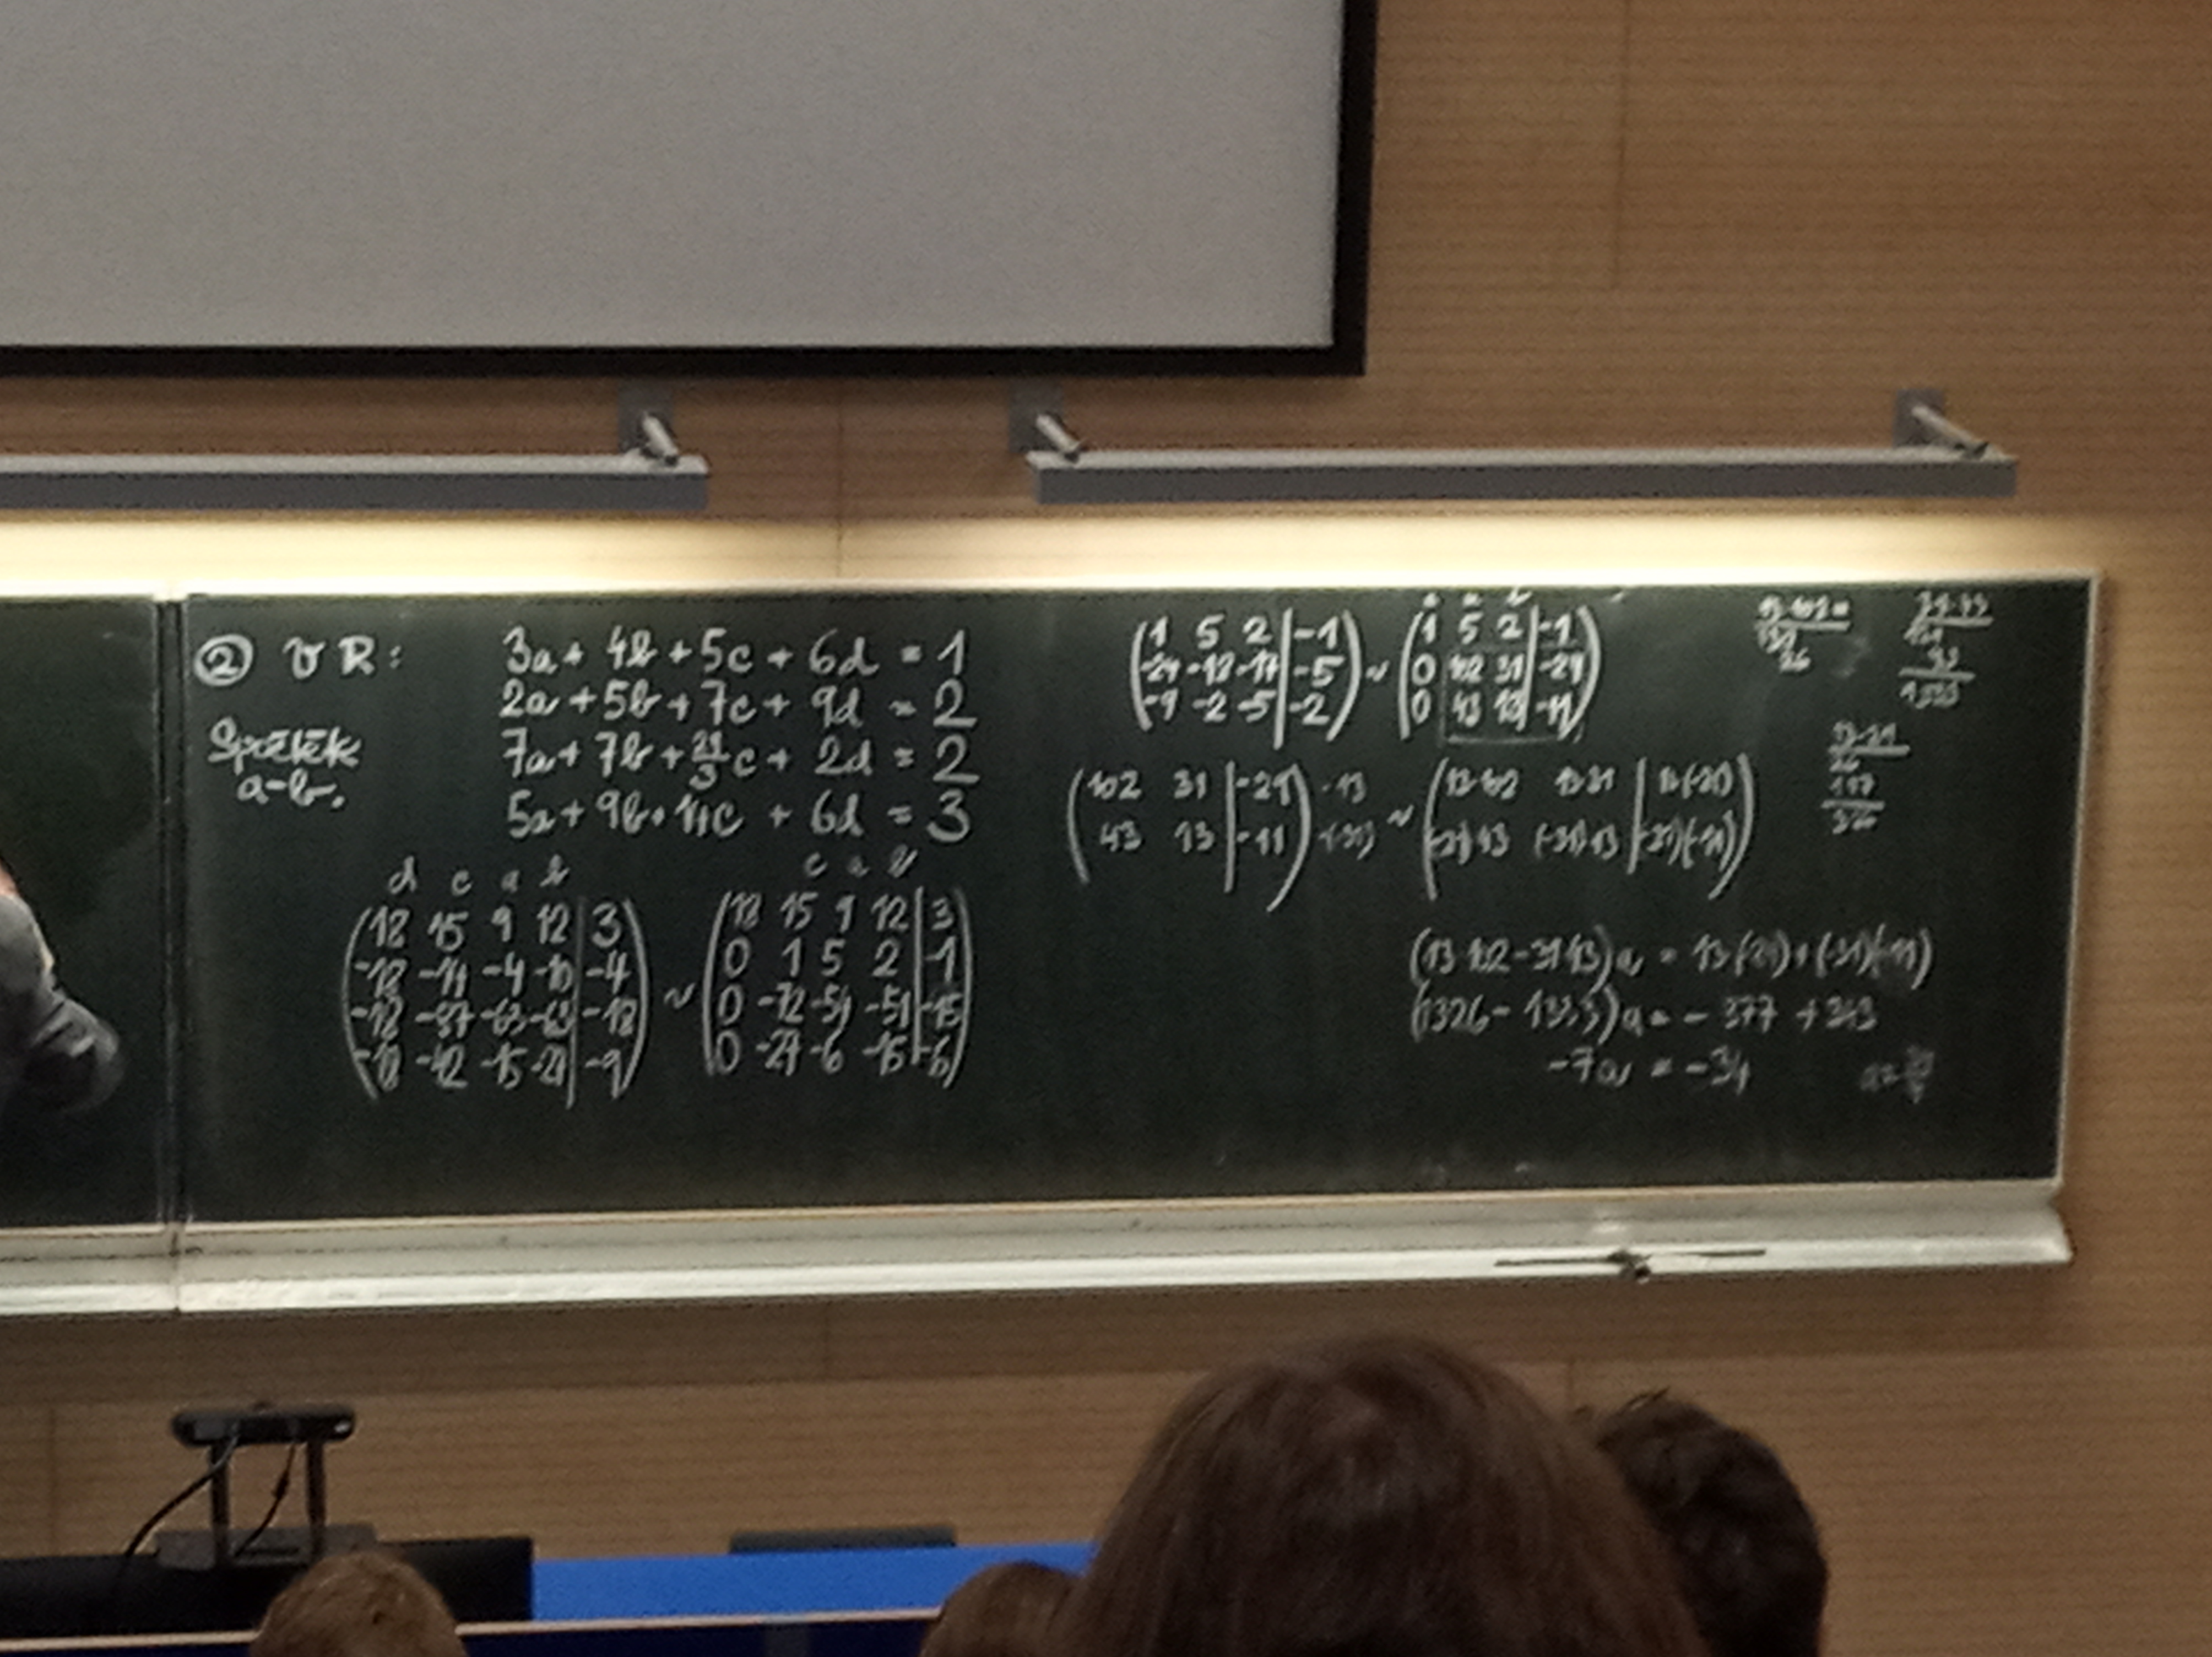 ② V R: 3a + 4b + 5c + 6d = 1
2a + 5b + 7c + 9d = 2
7a + 7b + 29/3 c + 2d = 2
5a + 9b + 14c + 6d = 3
Spočtěte
a-b.
d c a b
18 15 9 12 | 3
-18 -14 -4 -10 | -4
-18 -87 -63 -63 | -18
-18 -42 -15 -27 | -9
~
c a b
18 15 9 12 | 3
0 1 5 2 | -1
0 -72 -54 -51 | -15
0 -27 -6 -15 | -6
1 5 2 | -1
-24 -18 -17 | -5
-9 -2 -5 | -2
~
1 5 2 | -1
0 102 31 | -29
0 43 13 | -11
102 31 | -29 ·13
43 13 | -11 ·(-31)
~
13·102 13·31 | 13·(-29)
(-31)·43 (-31)·13 | (-31)(-11)
(13·102-31·43)a = 13·(-29)+(-31)(-11)
(1326-1333)a = -377 + 343
-7a = -34